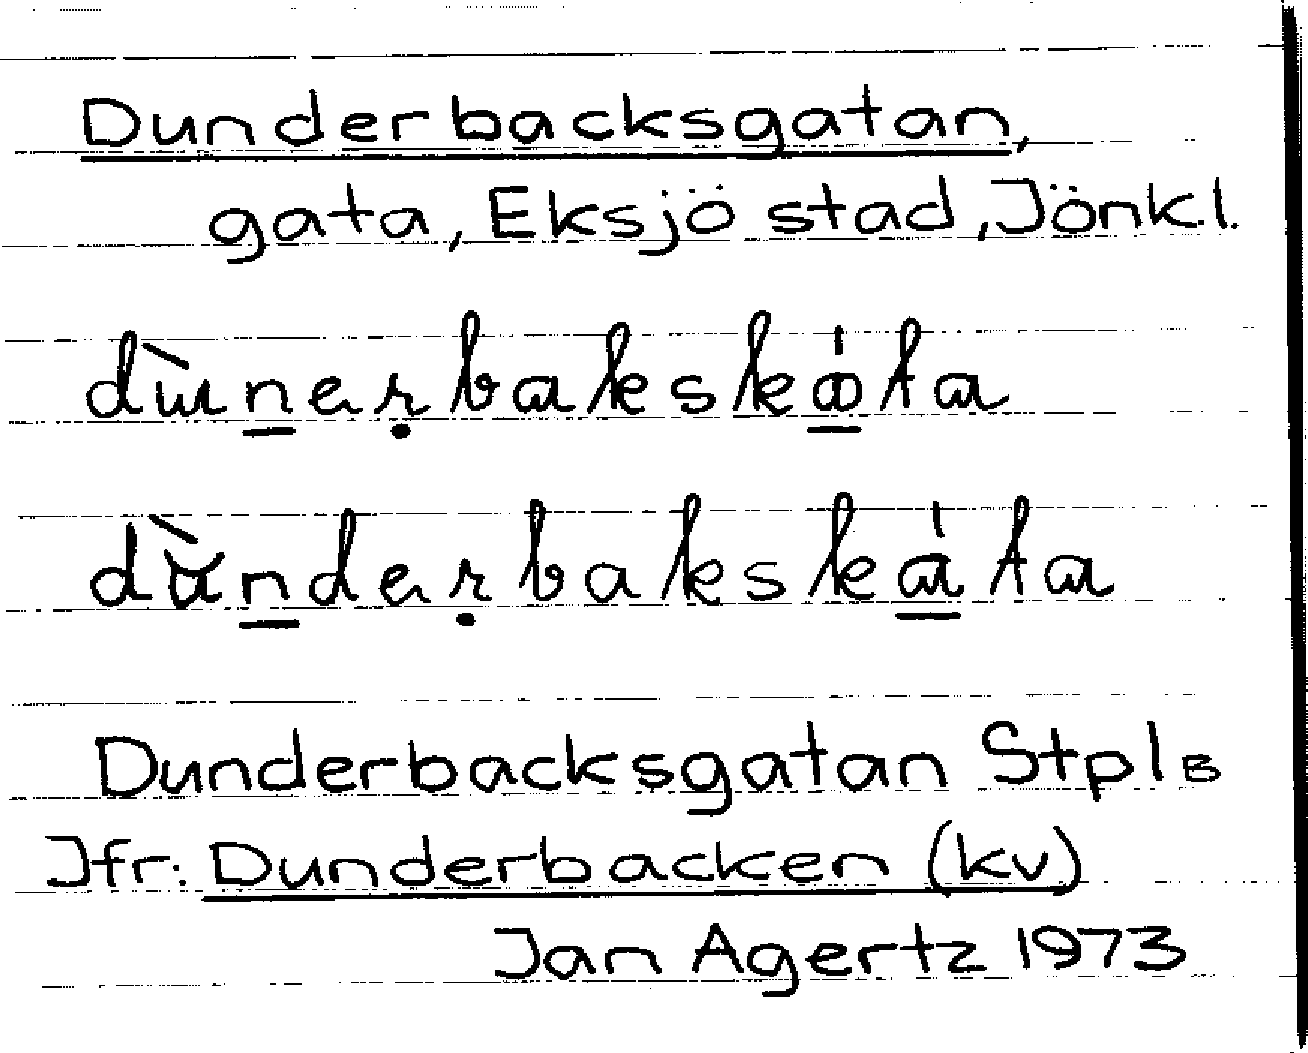 Dunderbacksgatan,
gata, Eksjö stad, Jönk.l.
dùnerbakskⱥ́ta
dùnderbakskáta
Dunderbacksgatan Stpl B
Jfr: Dunderbacken (kv)
Jan Agertz 1973